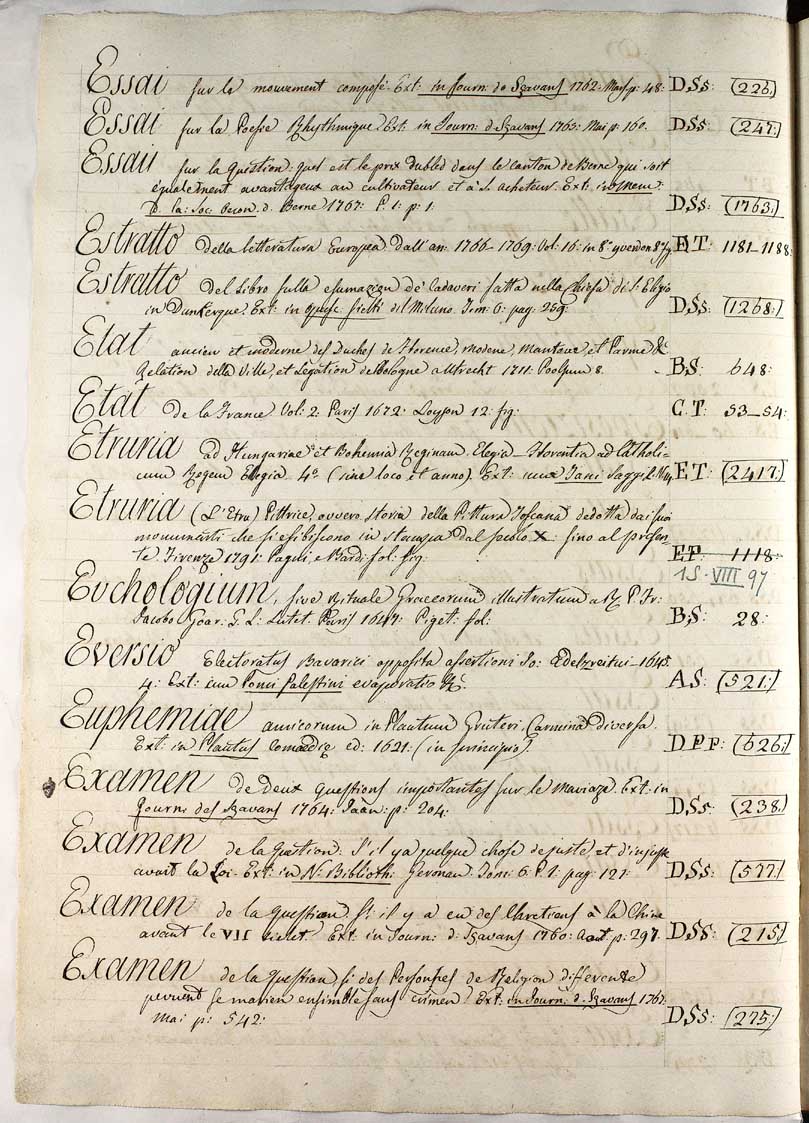 Essai sur le mouvement composé. Ext: in Journ: de Sçavans 1762: Mars p: 48: D.Ss: (226.)
Essai sur la Poesie Rhythmique. Ext: in Journ: d. Sçavans 1763: Mai p: 160. DSs: (247.)
Essai sur la Question: quel est le prix du bled dans le canton de Berne qui soit
également avantageux au cultivateur et à l'acheteur. Ext. in Mem:
D. la: Soc: Oecon. d. Berne 1767: P. 1: p: 1: D.Ss: (1763.)
Estratto della letteratura Europea dall'an: 1766-1769: Vol: 16: in 8.º yverdon E.T: 1181-1188
Estratto del Libro sulla esumazion de' cadaveri fatta nella Chiesa di S. Eligio
in Dunkerque. Ext: in opusc. scelti di Milano. Tom: 6: pag: 259: D.Ss: (1268.)
Etat ancien et moderne des Duches de Florence, modene, mantoue, et Parme &c
Relation della Ville, et Legation de Bologne a Utrecht 1711: Poolsum 8. - B.S: 648:
Etat de la France Vol: 2: Paris 1672: Loyson 12: fig: C.T: 53-54:
Etruria ad Hungariae et Bohemia Reginam. Elegia - Florentia ad Catholi-
cum Regem Elegia 4º (sine loco et anno). Ext: cum Jani E.T: (2417.)
Etruria (L'Etru) Pittrice, ovvero storia della Pittura Toscana dedotta dai suoi
monumenti che si esibiscono in stampa dal secolo X: fino al presen-
te Firenze 1791: Pagni, e Bardi: fol: fig: E.T. 1118:
15. VIII 97
Euchologium, sive Rituale Graecorum illustratum a R. P. Fr:
Jacobo Goar. G. L: Lutet: Paris 1647: Piget: fol: B.S: 28:
Eversio Electoratus Bavarici opposita assertioni Jo: 1645.
4: Ext: cum Tonci Palestini evaporatio &c. A.S: (521.)
Euphemiae amicorum in Plautum Gruteri, Carmina diversa.
Ext: in Plautus comaediae ed: 1621: (in principio) D.P.P: (626.)
Examen de deux questions importantes sur le Mariage. Ext: in
Journ: des Sçavans 1764: Jaan: p: 204: D.Ss: (238.)
Examen de la question: S'il y a quelque chose de juste, et d'injuste
avant la Loi. Ext: in N: Biblioth: German. Tom: 6: P. 1: pag: 121: D.Ss: (577.)
Examen de la question. S'il y a eu des Chretiens à la Chine
avant le VII siecle. Ext: in Journ: d: Sçavans 1760: Aout: p: 297. D.Ss: (215.)
Examen de la question, si des Personnes de Religion differente
peuvent se marier ensimble sans crimen? Ext: in Journ: d. Sçavans 1767:
Mai p: 542: D.Ss: (275.)